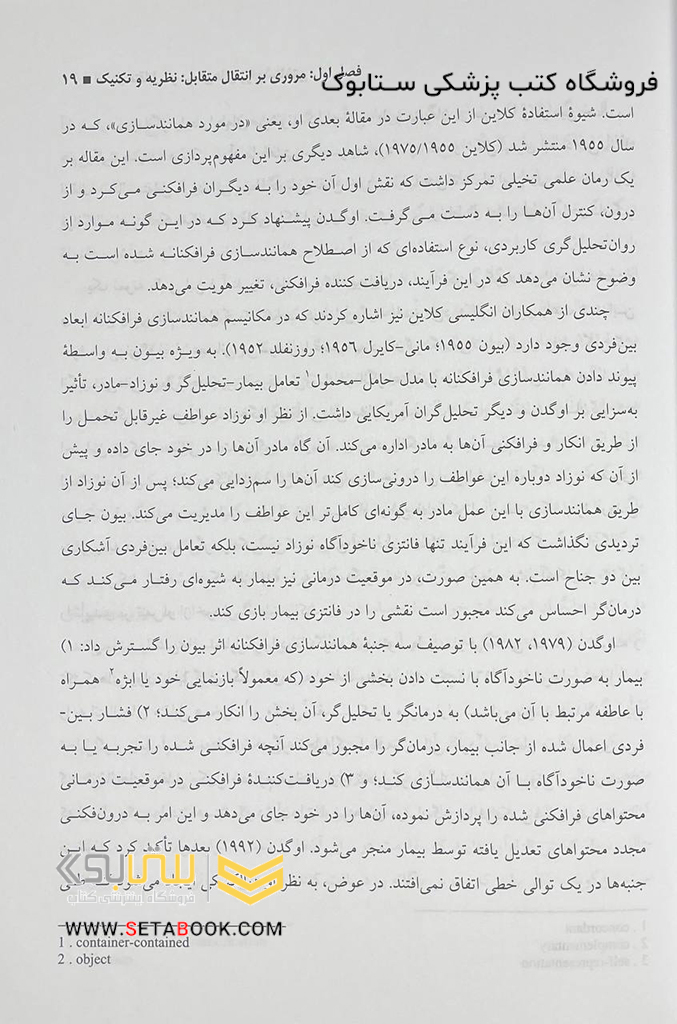 فصل اول: مروری بر انتقال متقابل: نظریه و تکنیک ■ ۱۹
فروشگاه کتب پزشکی ستابوک
است. شیوهٔ استفادهٔ کلاین از این عبارت در مقالهٔ بعدی او، یعنی «در مورد همانندسازی»، که در
سال ۱۹۵۵ منتشر شد (کلاین ۱۹۷۵/۱۹۵۵)، شاهد دیگری بر این مفهوم‌پردازی است. این مقاله بر
یک رمان علمی تخیلی تمرکز داشت که نقش اول آن خود را به دیگران فرافکنی می‌کرد و از
درون، کنترل آن‌ها را به دست می‌گرفت. اوگدن پیشنهاد کرد که در این گونه موارد از
روان‌تحلیل‌گری کاربردی، نوع استفاده‌ای که از اصطلاح همانندسازی فرافکنانه شده است به
وضوح نشان می‌دهد که در این فرآیند، دریافت کننده فرافکنی، تغییر هویت می‌دهد.
چندی از همکاران انگلیسی کلاین نیز اشاره کردند که در مکانیسم همانندسازی فرافکنانه ابعاد
بین‌فردی وجود دارد (بیون ۱۹۵۵؛ مانی-کایرل ۱۹۵۶؛ روزنفلد ۱۹۵۲). به ویژه بیون به واسطهٔ
پیوند دادن همانندسازی فرافکنانه با مدل حامل-محمول۱ تعامل بیمار-تحلیل‌گر و نوزاد-مادر، تأثیر
به‌سزایی بر اوگدن و دیگر تحلیل‌گران آمریکایی داشت. از نظر او نوزاد عواطف غیرقابل تحمل را
از طریق انکار و فرافکنی آن‌ها به مادر اداره می‌کند. آن گاه مادر آن‌ها را در خود جای داده و پیش
از آن که نوزاد دوباره این عواطف را درونی‌سازی کند آن‌ها را سم‌زدایی می‌کند؛ پس از آن نوزاد از
طریق همانندسازی با این عمل مادر به گونه‌ای کامل‌تر این عواطف را مدیریت می‌کند. بیون جای
تردیدی نگذاشت که این فرآیند تنها فانتزی ناخودآگاه نوزاد نیست، بلکه تعامل بین‌فردی آشکاری
بین دو جناح است. به همین صورت، در موقعیت درمانی نیز بیمار به شیوه‌ای رفتار می‌کند که
درمان‌گر احساس می‌کند مجبور است نقشی را در فانتزی بیمار بازی کند.
اوگدن (۱۹۷۹، ۱۹۸۲) با توصیف سه جنبهٔ همانندسازی فرافکنانه اثر بیون را گسترش داد: ۱)
بیمار به صورت ناخودآگاه با نسبت دادن بخشی از خود (که معمولاً بازنمایی خود یا ابژه۲ همراه
با عاطفه مرتبط با آن می‌باشد) به درمانگر یا تحلیل‌گر، آن بخش را انکار می‌کند؛ ۲) فشار بین-
فردی اعمال شده از جانب بیمار، درمان‌گر را مجبور می‌کند آنچه فرافکنی شده را تجربه یا به
صورت ناخودآگاه با آن همانندسازی کند؛ و ۳) دریافت‌کنندهٔ فرافکنی در موقعیت درمانی
محتواهای فرافکنی شده را پردازش نموده، آن‌ها را در خود جای می‌دهد و این امر به درون‌فکنی
مجدد محتواهای تعدیل یافته توسط بیمار منجر می‌شود. اوگدن (۱۹۹۲) بعدها تأکید کرد که این
جنبه‌ها در یک توالی خطی اتفاق نمی‌افتند. در عوض، به نظر او
ستابوک
فروشگاه اینترنتی کتاب
WWW.SETABOOK.COM
1 . container-contained
2 . object